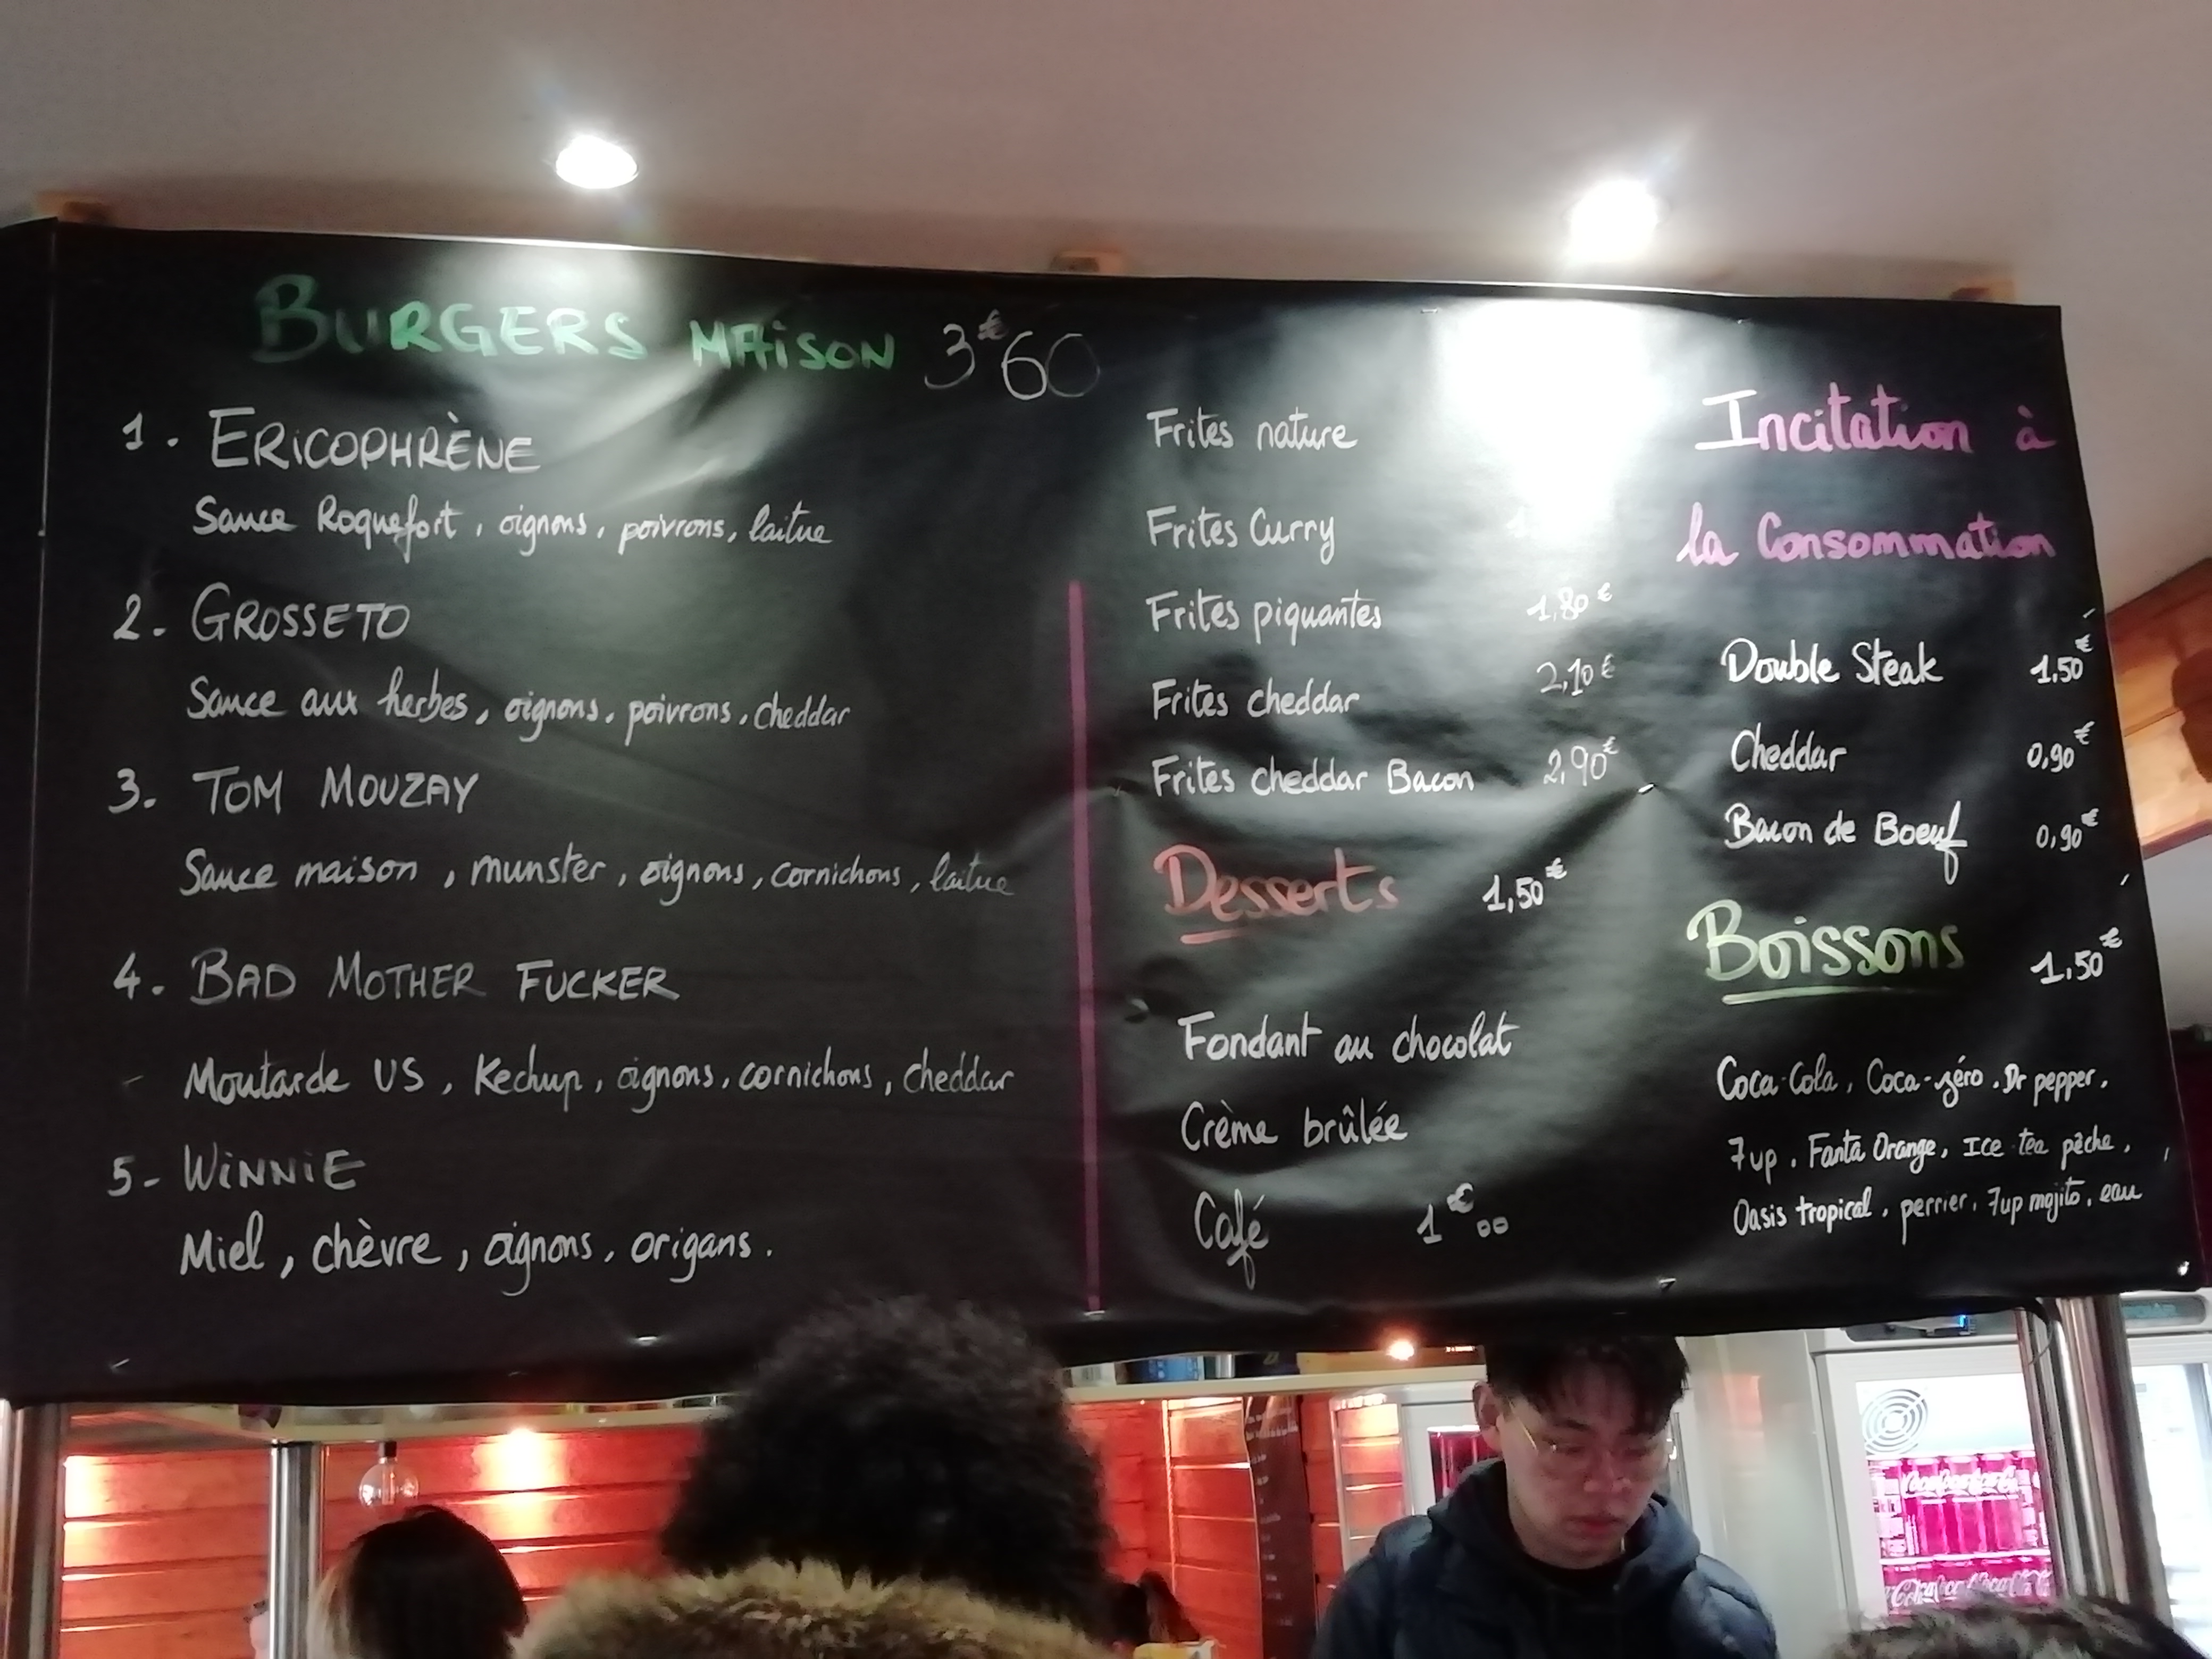 BURGERS MAiSON 3€60
1. ERICOPHRÈNE
Sauce Roquefort, oignons, poivrons, laitue
2. GROSSETO
Sauce aux herbes, oignons, poivrons, cheddar
3. TOM MOUZAY
Sauce maison, munster, oignons, cornichons, laitue
4. BAD MOTHER FUCKER
Moutarde US, Kechup, oignons, cornichons, cheddar
5- WiNNiE
Miel, chèvre, oignons, origans.
Frites nature
Frites Curry
Frites piquantes 1,80€
Frites cheddar 2,10€
Frites cheddar Bacon 2,90€
Desserts 1,50€
Fondant au chocolat
Crème brûlée
Café 1€00
Incitation à
la Consommation
Double Steak 1,50€
Cheddar 0,90€
Bacon de Boeuf 0,90€
Boissons 1,50€
Coca-Cola, Coca-zéro, Dr pepper,
7up, Fanta Orange, Ice tea pêche,
Oasis tropical, perrier, 7up mojito, eau